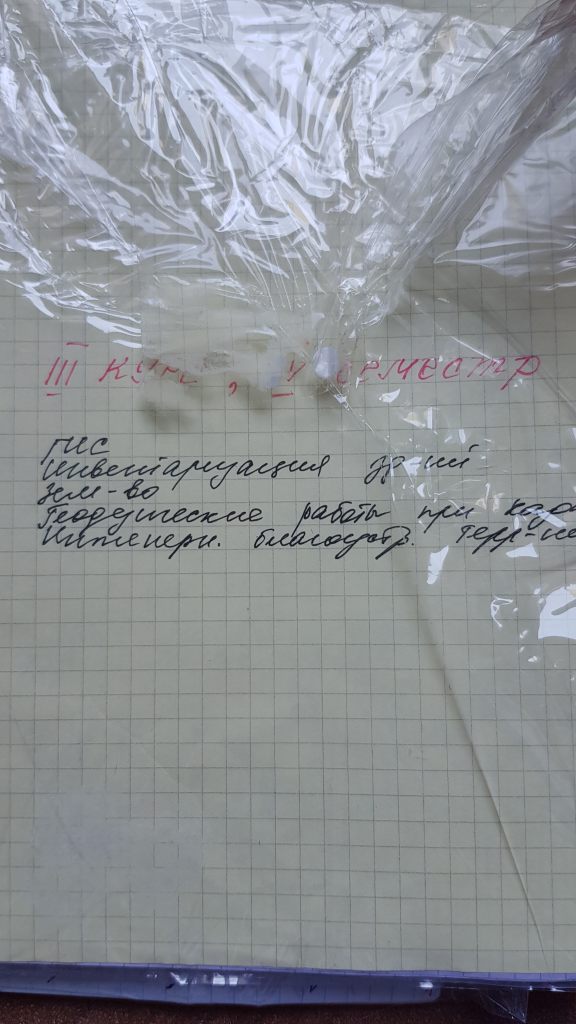 III курс, V семестр
ГИС
Инвентаризация зд-ий
Зем-во
Геодезические работы при
Инженерн. благоустр. терр-ие